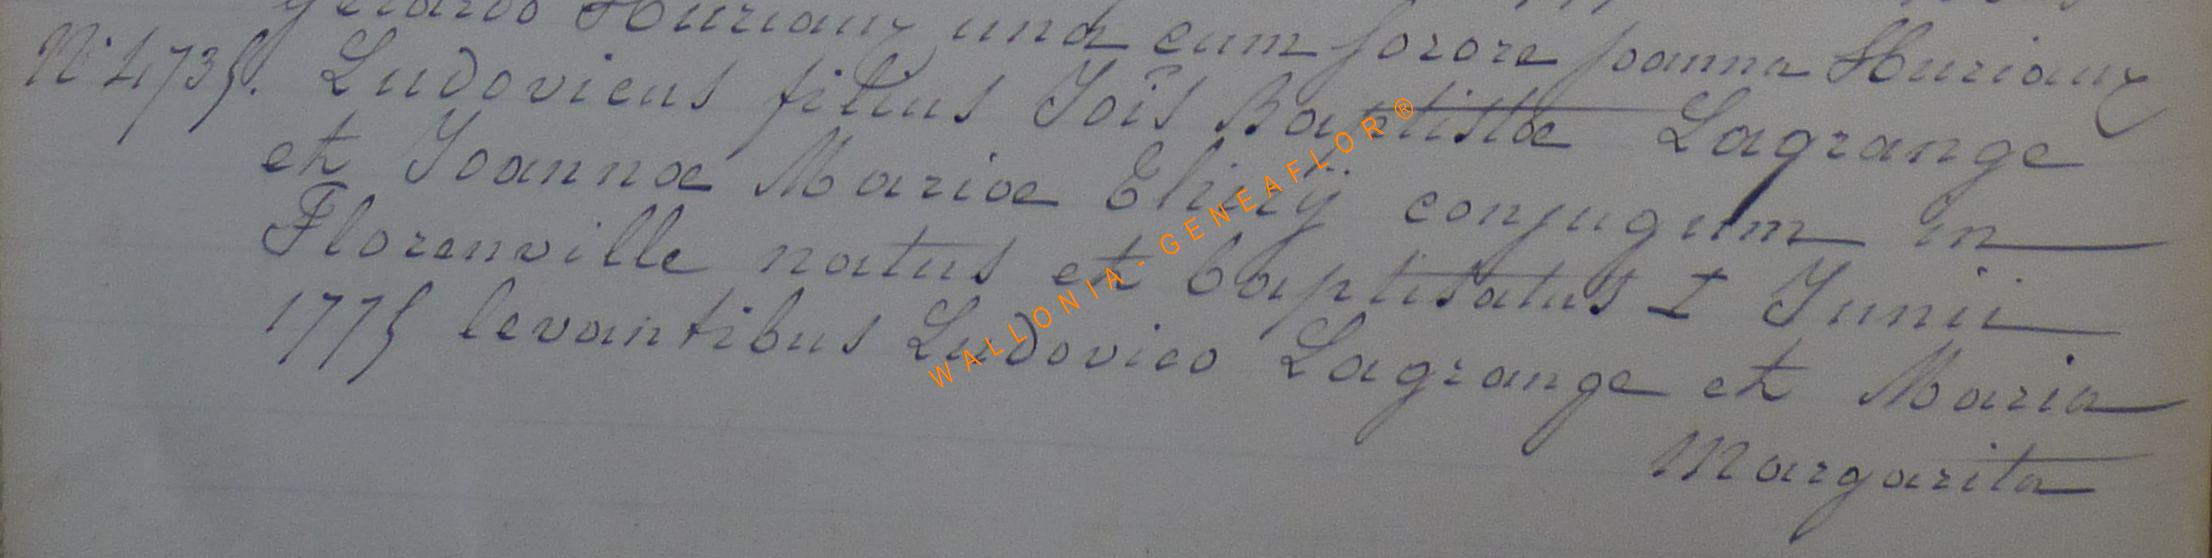 gerardo Huriaux una cum sorore Joanna Huriaux
N° 4735. Ludovicus filius Jois Baptistæ Lagrange
et Joannæ Mariæ conjugum in
Florenville natus et baptisatus 1 Junii
1775 levantibus Ludovico Lagrange et Maria
Margarita
WALLONIA - GENEAFLOR ®